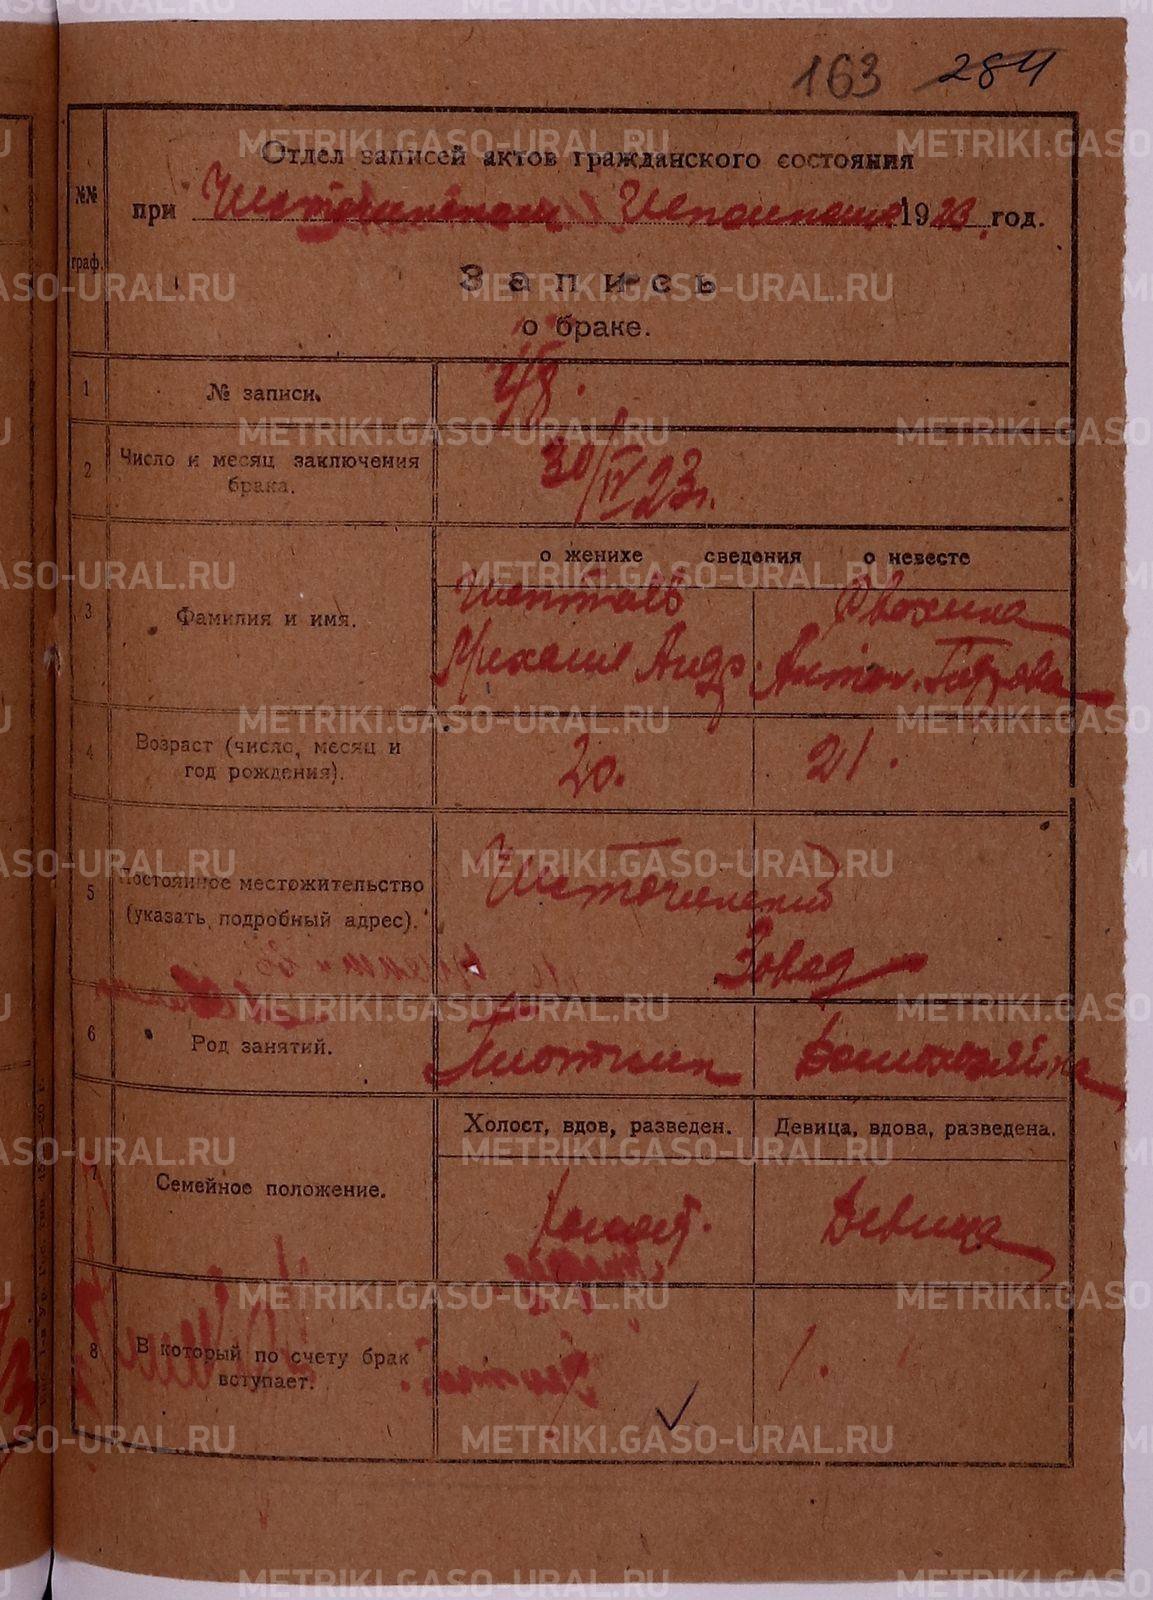 163 284
Отдел записей актов гражданского состояния
№№
граф.
при Исполкоме 1923 год.
Запись
о браке.
1 № записи. 48.
2 Число и месяц заключения
брака.
30/IV 23 г.
о женихе сведения о невесте
3 Фамилия и имя.
Михаил Андр. Антон. Петрова
4 Возраст (число, месяц и
год рождения).
20. 21.
5 Постоянное местожительство
(указать подробный адрес).
Завод
6 Род занятий.
Плотник Домохозяйка
Холост, вдов, разведен. Девица, вдова, разведена.
7 Семейное положение.
Холост. Девица
8 В который по счету брак
вступает.
1.
METRIKI.GASO-URAL.RU